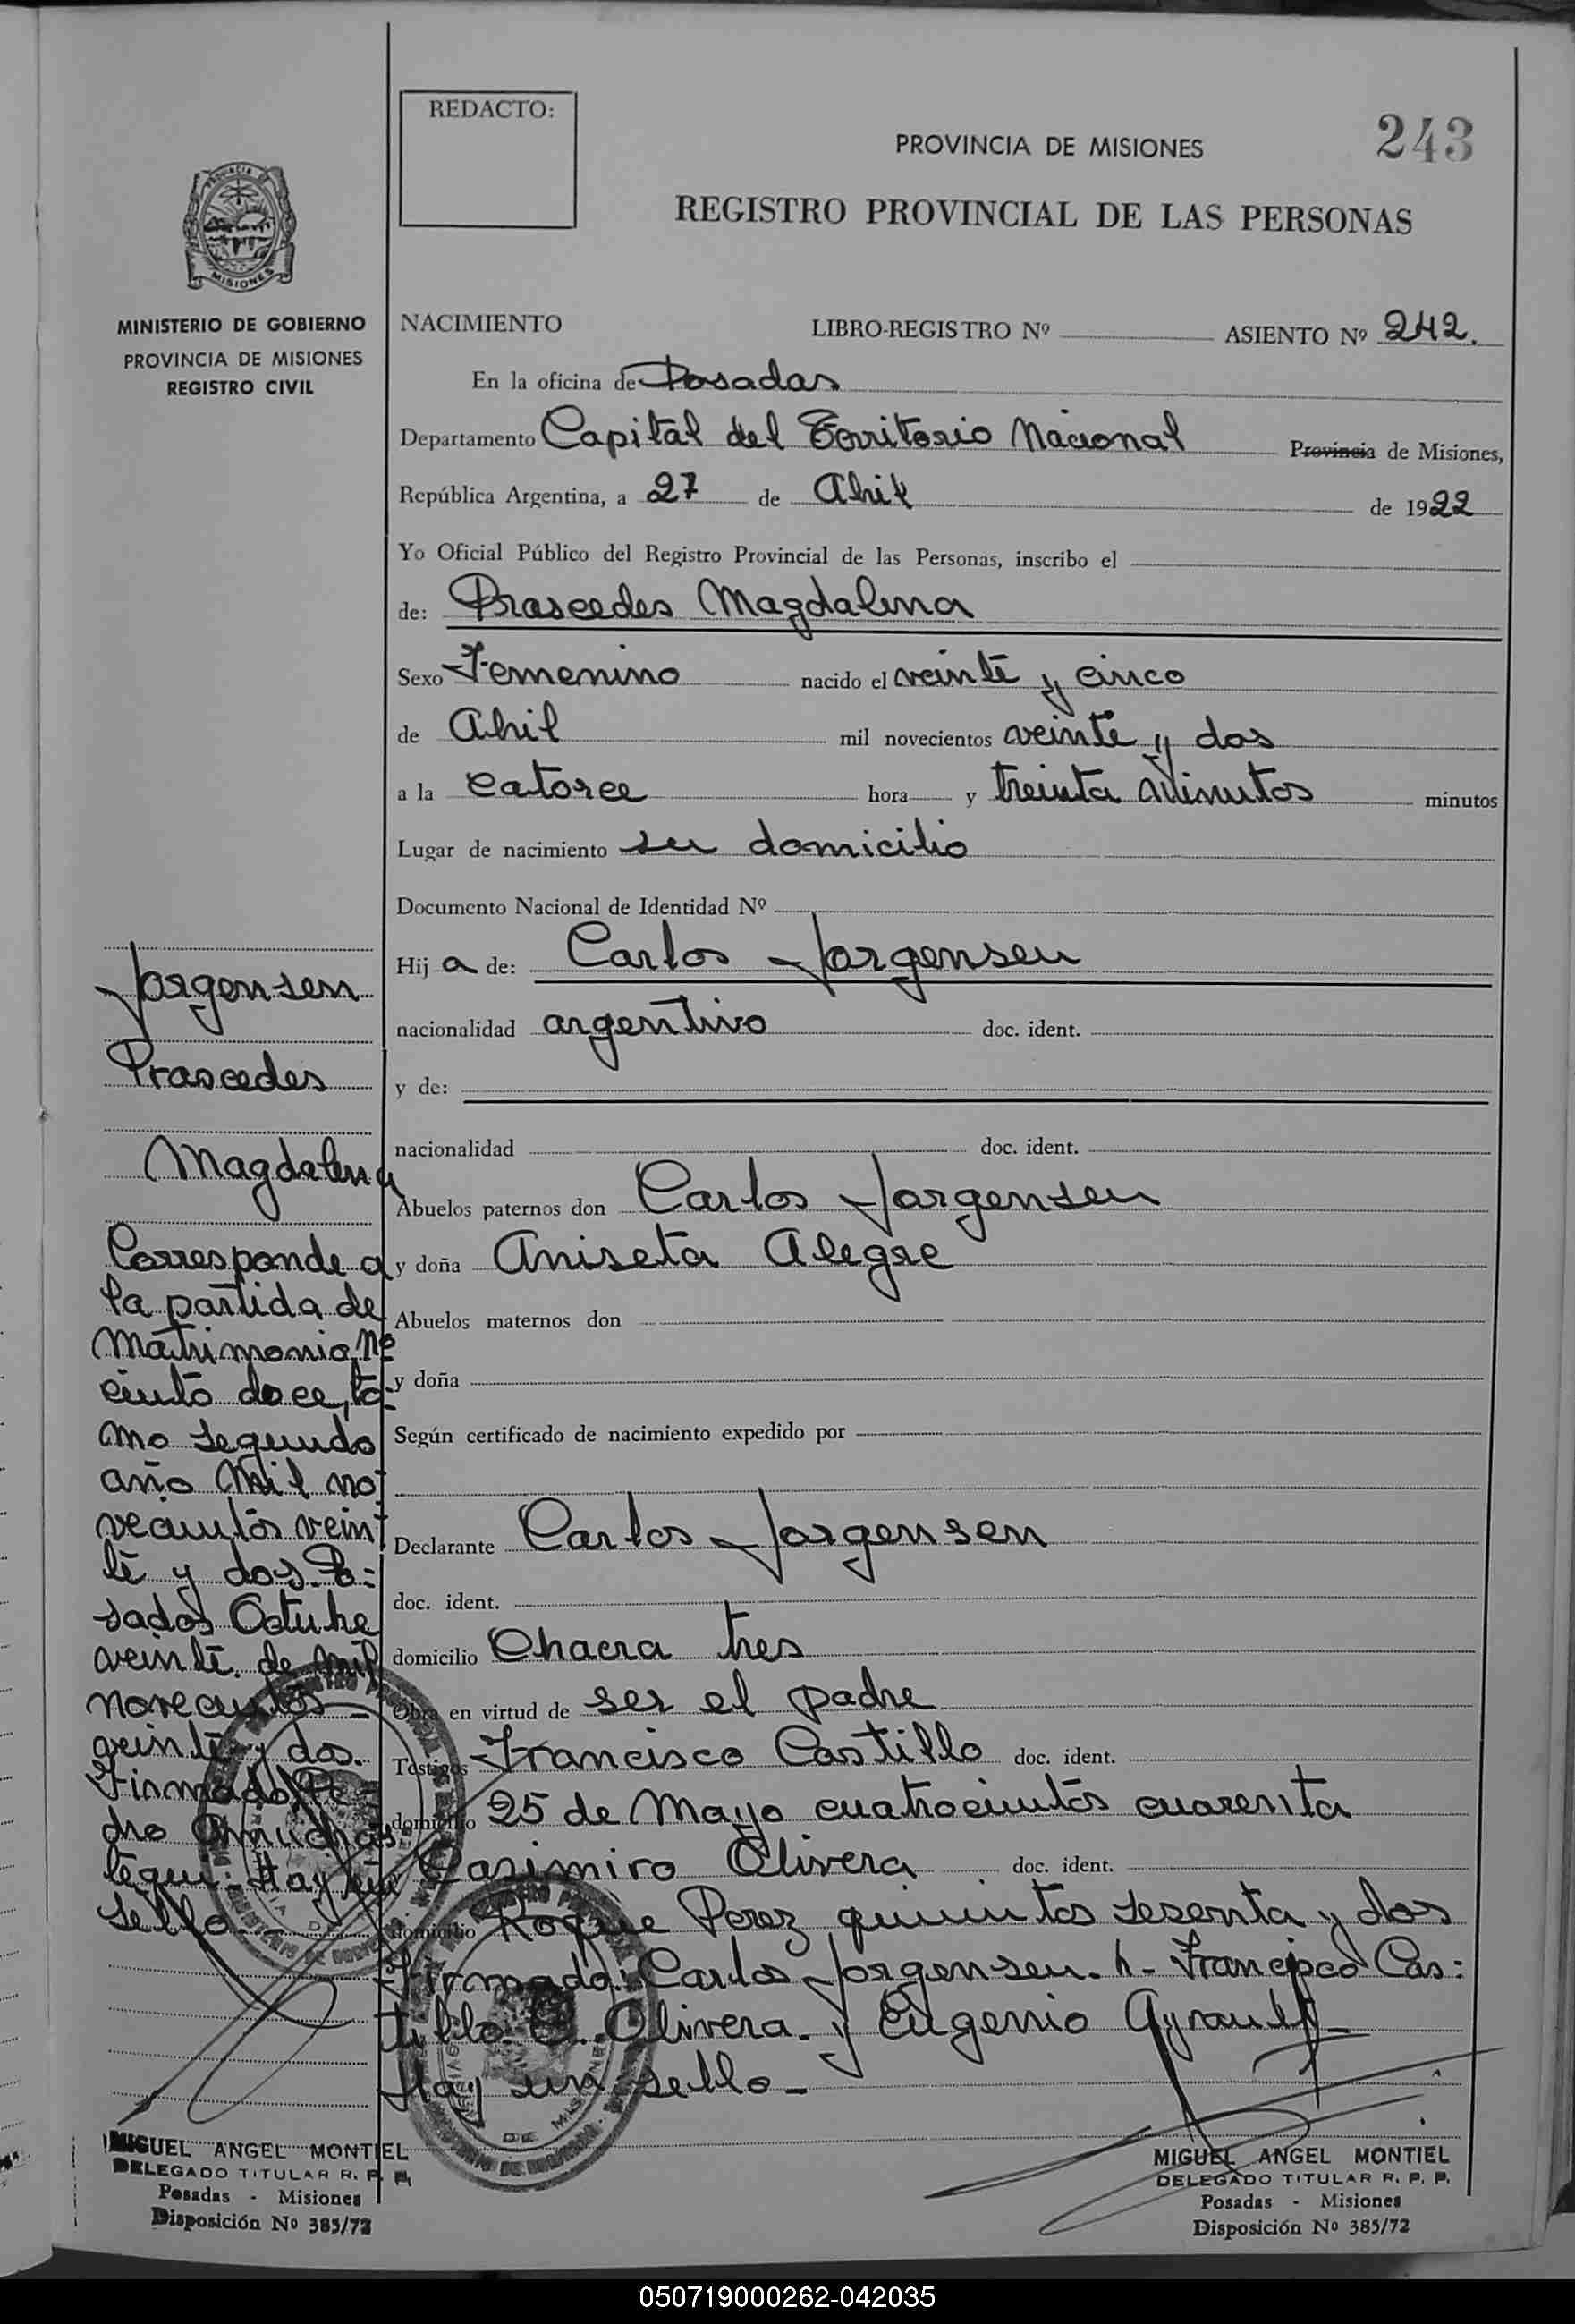 REDACTO:
PROVINCIA DE MISIONES
243
REGISTRO PROVINCIAL DE LAS PERSONAS
MISIONES
MINISTERIO DE GOBIERNO
PROVINCIA DE MISIONES
REGISTRO CIVIL
NACIMIENTO LIBRO-REGISTRO Nº ASIENTO Nº 242.
En la oficina de Posadas
Departamento Capital del Territorio Nacional Provincia de Misiones,
República Argentina, a 27 de Abril de 1922
Yo Oficial Público del Registro Provincial de las Personas, inscribo el
de: Prascedes Magdalena
Sexo Femenino nacido el veinte y cinco
de Abril mil novecientos veinte y dos
a la catorce hora y treinta minutos minutos
Lugar de nacimiento su domicilio
Documento Nacional de Identidad Nº
Hij a de: Carlos Jorgensen
nacionalidad argentino doc. ident.
y de:
nacionalidad doc. ident.
Abuelos paternos don Carlos Jorgensen
y doña Aniseta Alegre
Abuelos maternos don
y doña
Según certificado de nacimiento expedido por
Declarante Carlos Jorgensen
doc. ident.
domicilio Chacra tres
Obra en virtud de ser el padre
Testigos Francisco Castillo doc. ident.
domicilio 25 de Mayo cuatrocientos cuarenta
Casimiro Olivera doc. ident.
domicilio Roque Perez quinientos sesenta y dos
Firmado: Carlos Jorgensen. h- Francisco Cas:
tillo. C. Olivera. y Eugenio Ayrault-
Hay un sello-
Jorgensen
Prascedes
Magdalena
Corresponde a
la partida de
Matrimonio, Nº
ciento doce, to-
mo segundo
año mil no:
vecientos vein
te y dos. Po:
sadas Octubre
veinte de mil
novecientos
veinte y dos.
Firmado: Pe-
dro
Hay un
sello.
MIGUEL ANGEL MONTIEL
DELEGADO TITULAR R. P. P.
Posadas - Misiones
Disposición Nº 385/72
MIGUEL ANGEL MONTIEL
DELEGADO TITULAR R. P. P.
Posadas - Misiones
Disposición Nº 385/72
050719000262-042035